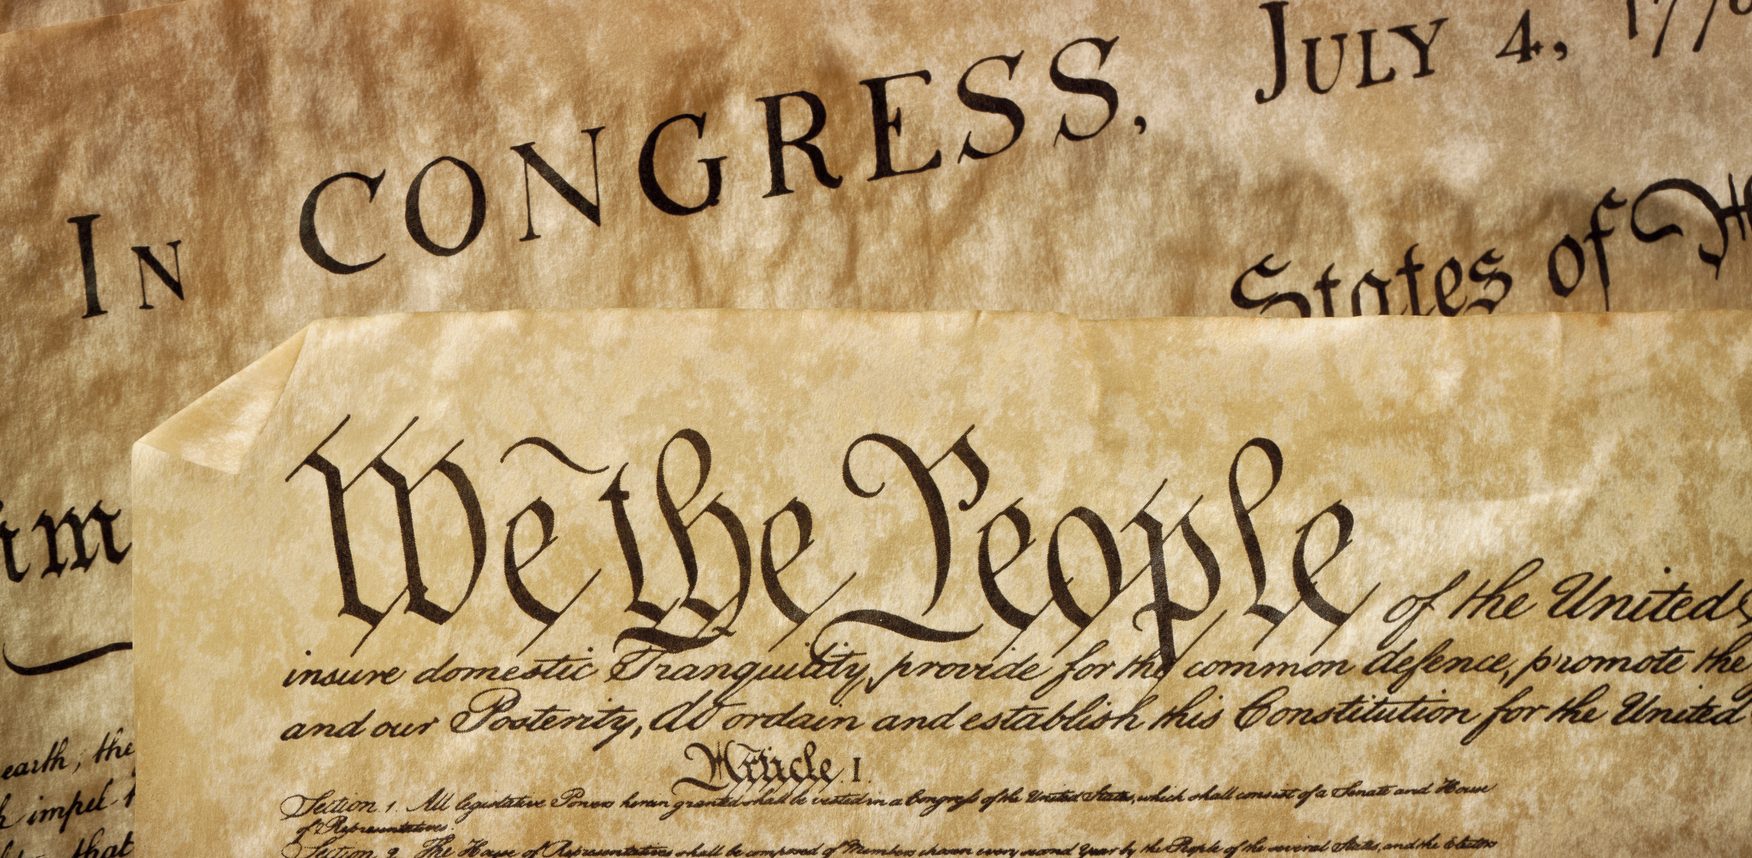 In CONGRESS, July 4, 177
States of
We the People of the United
insure domestic Tranquility, provide for the common defence, promote the
and our Posterity, do ordain and establish this Constitution for the United
Article. I.
Section. 1. All legislative Powers herein granted shall be vested in a Congress of the United States, which shall consist of a Senate and House
of Representatives.
Section. 2. The House of Representatives shall be composed of Members chosen every second Year by the People of the several States, and the Electors
im
earth, the
impel
that